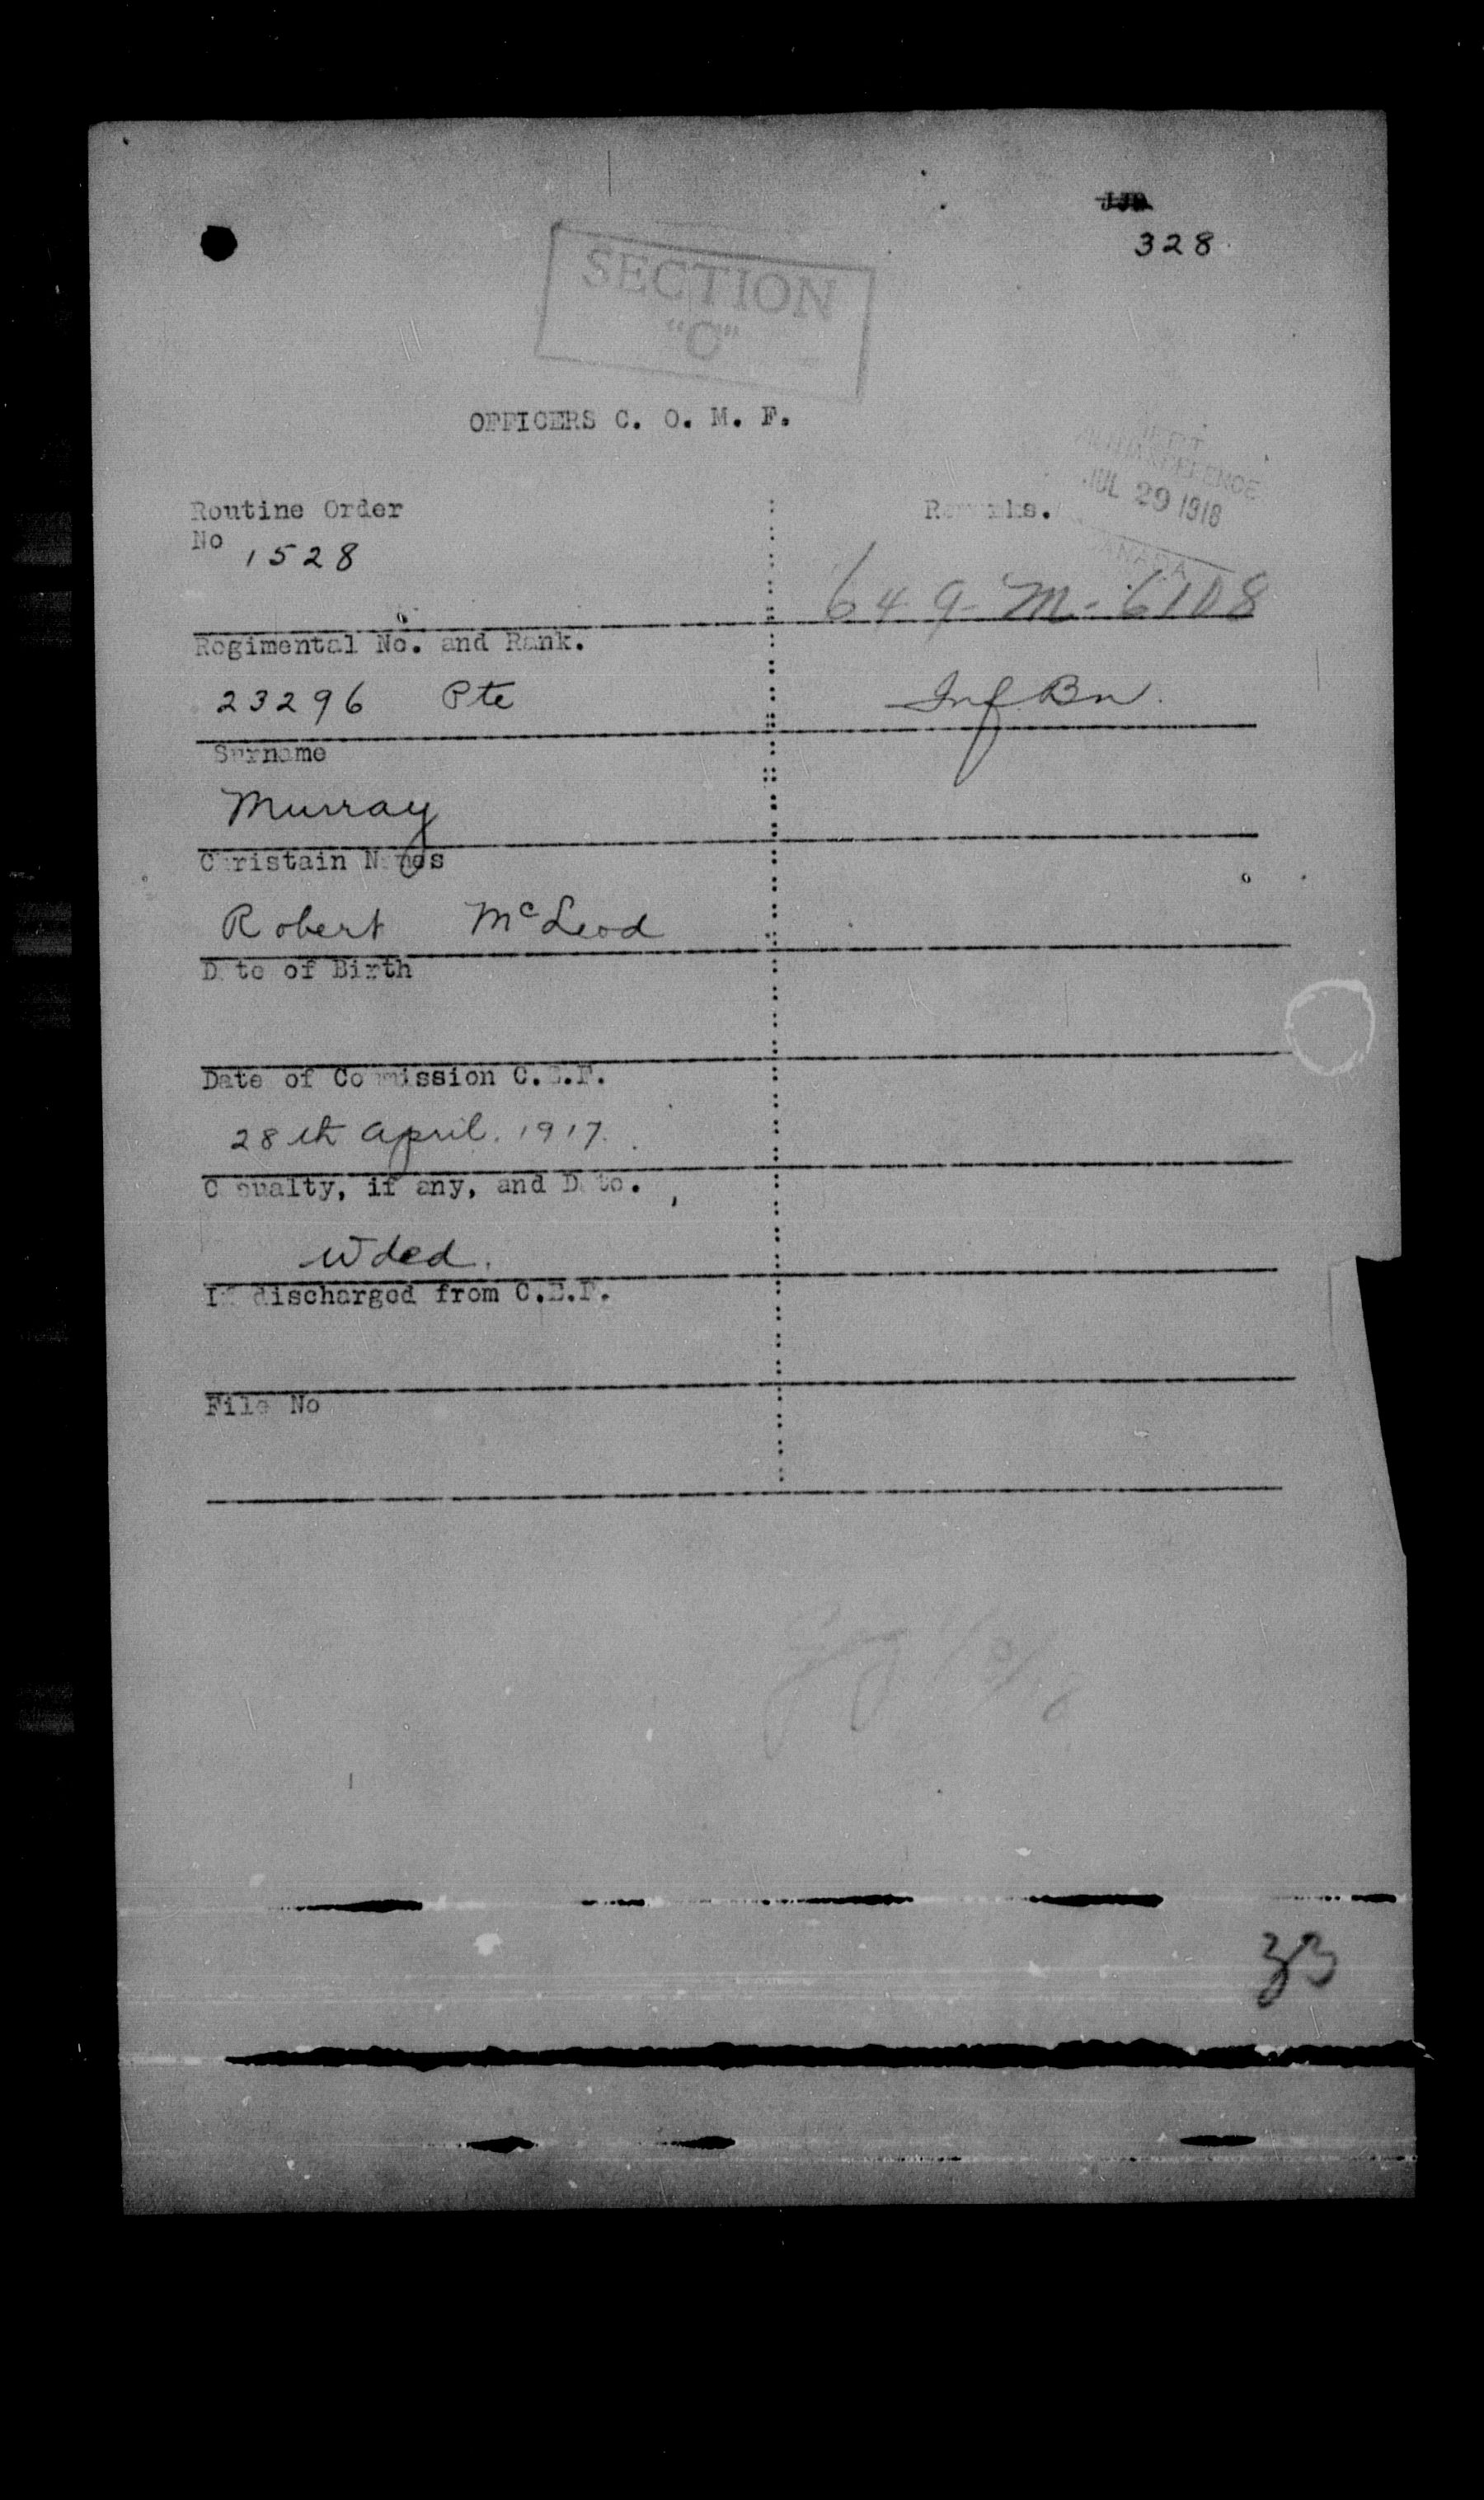 328
SECTION
"C"
OFFICERS C. O. M. F.
Routine Order
No 1528
Remarks.
DEPT
MILITIA & DEFENCE
JUL 29 1918
CANADA
649-M-6108
Regimental No. and Rank.
23296 Pte
Inf. Bn.
Surname
Murray
Christain Names
Robert McLeod
Date of Birth
Date of Commission C.E.F.
28th April. 1917.
Casualty, if any, and Date.
Wded.
If discharged from C.E.F.
File No
33